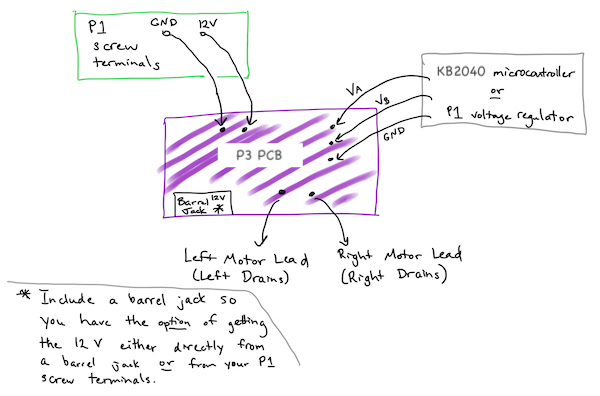 P1
screw
terminals
GND
12V
KB2040 microcontroller
or
P1 voltage regulator
VA
VB
GND
P3 PCB
Barrel 12V
Jack *
Left Motor Lead
(Left Drains)
Right Motor Lead
(Right Drains)
* Include a barrel jack so
you have the option of getting
the 12 V either directly from
a barrel jack or from your P1
screw terminals.